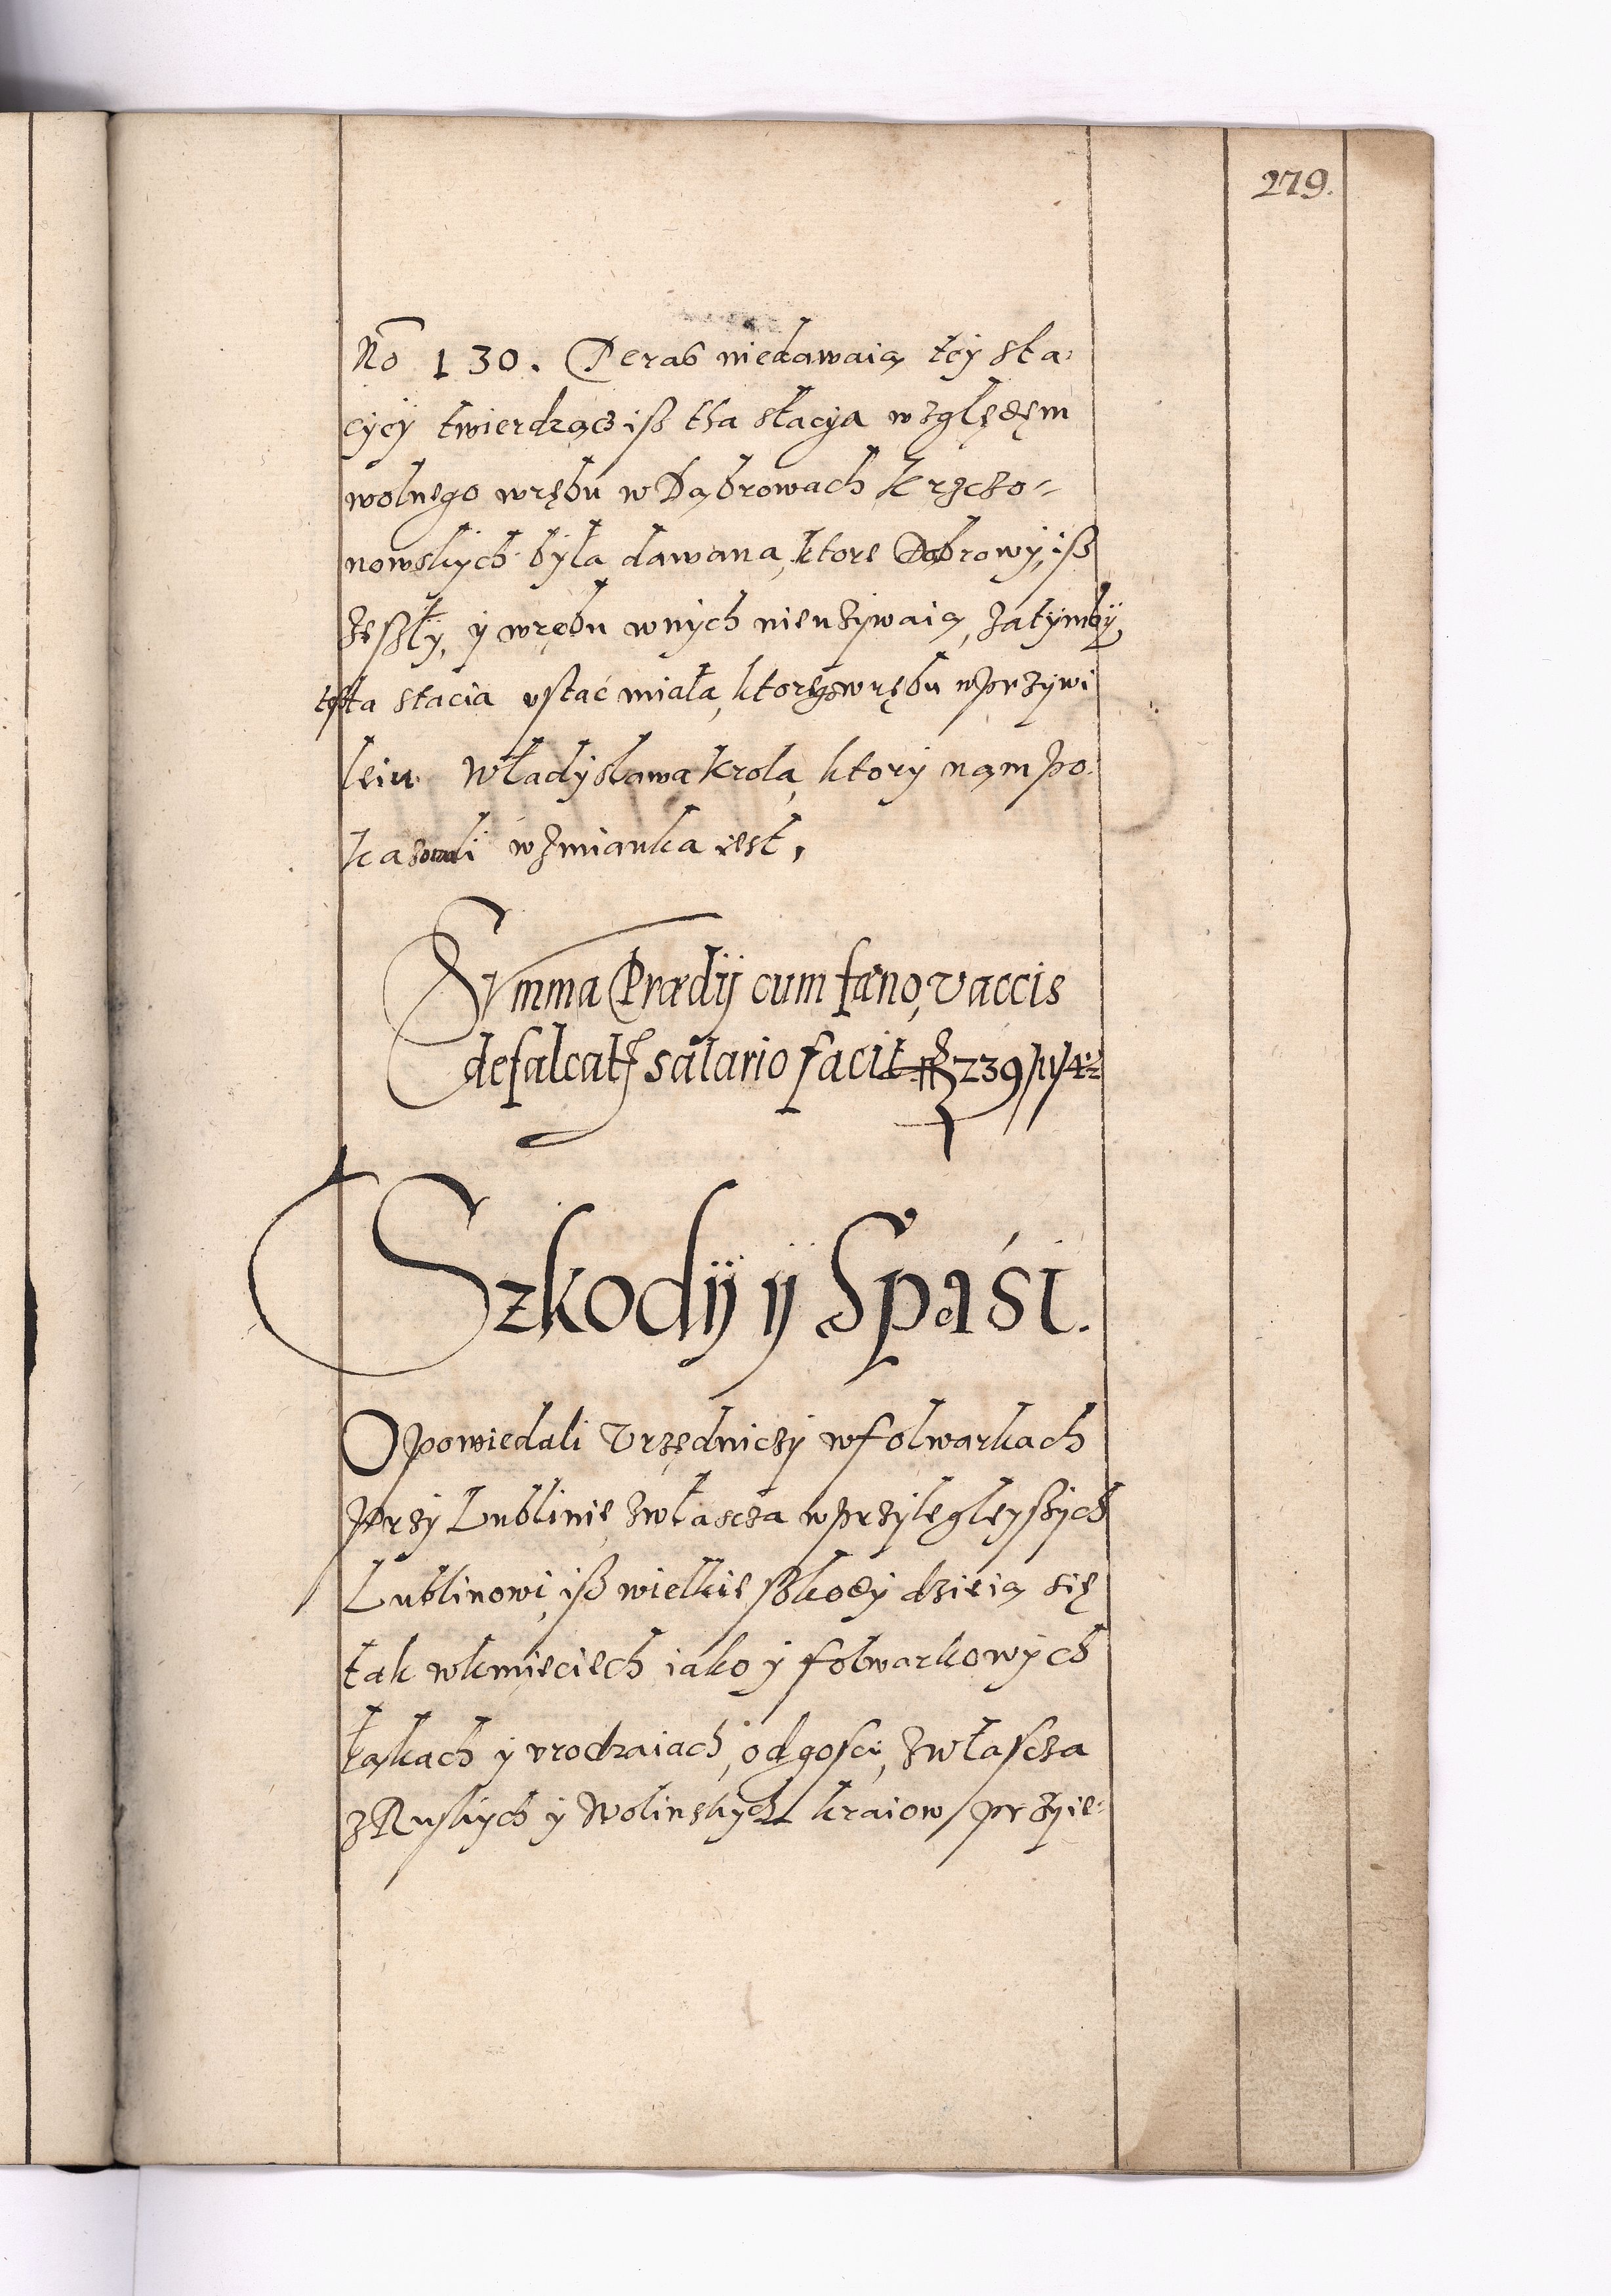 279.
No 130. Teras niedawaią tey sta:
cyey twierdząc iß tha stacya względęm
wolnego wrębu w Dąbrowach Krzczo=
nowskych była dawana, ktore Dąbrowy, iß
zeßły, y wrębu wnych nieużywaią, zatymby
też ta stacia ustać miała, ktorego wrębu wprzywi
leiu Władysława Krola, ktory nąm po:
kazowali wzmianka iest,
Summa Prædij cum fæno, vaccis
defalcato salario facit fl 239/11/4½
Szkody y Spaśi.
Opowiedali Urzędniczy wfolwarkach
przy Lublinie, zwłascza wprzyległeyßych
Lublinowi, iß wielkie ßkody dzieią się
tak wkmieciech iako y folwarkowych
łąkach y urodzaiach, od gosci, zwłascza
z Ruskych y Wolinskych kraiow przyie=